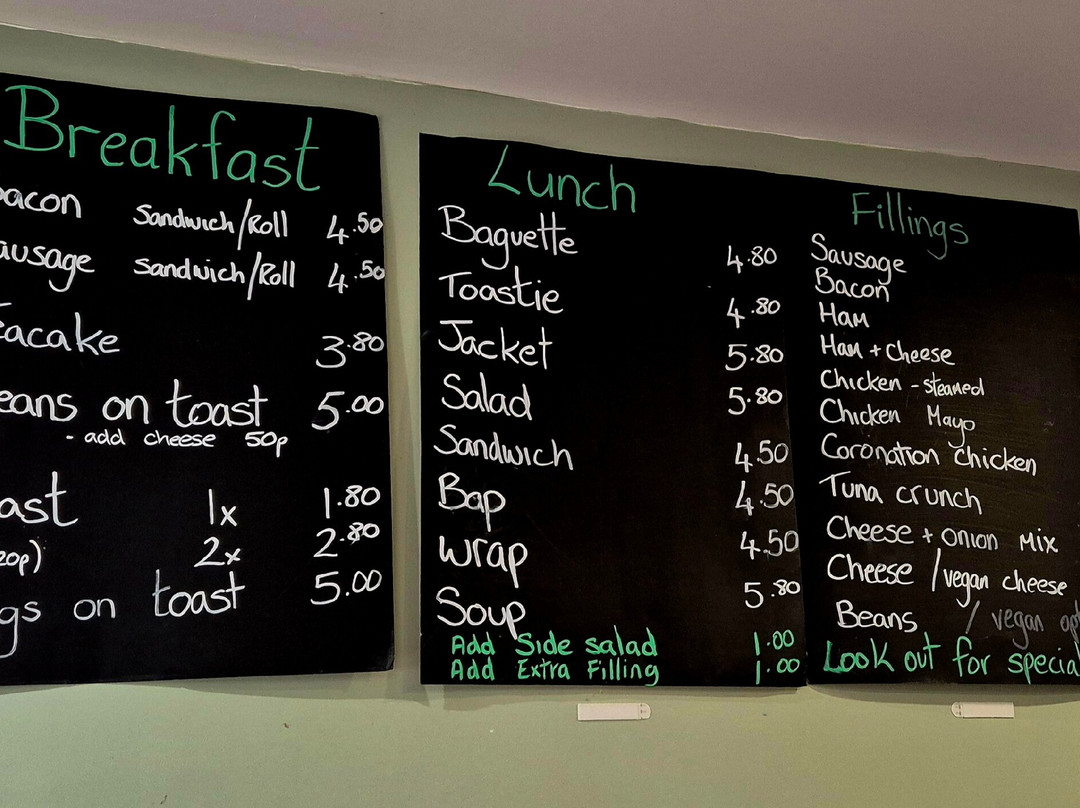 Breakfast
bacon Sandwich/Roll 4.50
ausage Sandwich/Roll 4.50
eacake 3.80
eans on toast 5.00
- add cheese 50p
ast 1x 1.80
20p) 2x 2.80
gs on toast 5.00
Lunch
Baguette 4.80
Toastie 4.80
Jacket 5.80
Salad 5.80
Sandwich 4.50
Bap 4.50
Wrap 4.50
Soup 5.80
Add Side salad 1.00
Add Extra Filling 1.00
Fillings
Sausage
Bacon
Ham
Ham + cheese
Chicken - steamed
Chicken Mayo
Coronation Chicken
Tuna crunch
Cheese + onion Mix
Cheese / vegan cheese
Beans / vegan opt
Look out for special